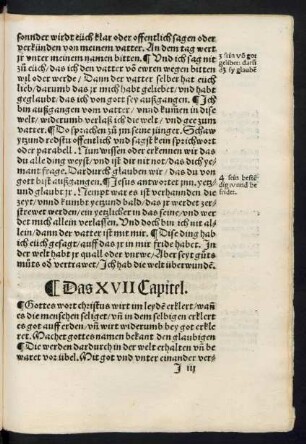 sonnder wirdt eüch klar oder offentlich sagen oder
verkünden von meinem vatter. An dem tag wert
jr vnter meinem namen bitten. ¶ Vnd ich sag nit
zů eüch/ das ich den vatter võ ewren wegen bitten
wil oder werde/ Dann der vatter selber hat eüch
lieb/ darumb das jr mich habt geliebet/ vnd habt
geglaubt/ das ich von got sey außgangen. ¶ Ich
bin außgangen vom vatter/ vnnd kummen in dise
welt/ widerumb verlaß ich die welt/ vnd gee zum
vatter. ¶ Do sprachen zů jm seine jünger. Schaw
ytzund redstu offentlich vnd sagst kein sprichwort
oder parabell. Nun wissen oder erkennen wir das
du alle ding weyst/ vnd ist dir nit not/ das dich ye-
mant frage. Dardurch glauben wir/ das du von
got bist außgangen. ¶ Jesus antwortet jnn/ yetz-
und glaubt jr. Nempt war es ist verhannden die
zeyt/ vnnd kumbt yezund bald/ das jr werdet zer-
streewet werden/ ein yetzlicher in das seine/ vnd wer
det mich allein verlassen. Vnd doch bin ich nit al-
lein/ dann der vatter ist mit mir. ¶ Dise ding hab
ich eüch gesagt/ auff das jr in mir fride habet. In
der welt habt jr quall oder vnrwe/ Aber seyt gůts
můts od vertrawet/ Ich hab die welt überwundẽ.
3 sein võ got
gelibet. darũ
dz sy glaubẽ
4 sein bestẽ
dig/vnnd be
fridet.
¶ Das XVII Capitel.
¶ Gottes wort christus wirt im leydẽ erklert/ wañ
es die menschen seliget/ vñ in dem selbigen erklert
es got auff erden/ vñ wirt widerumb bey got erkle
ret. Machet gottes namen bekant den glaubigen
¶ Die werden dardurch in der welt erhalten vñ be
waret vor übel. Mit got vnd vnter einander ver-
J iij